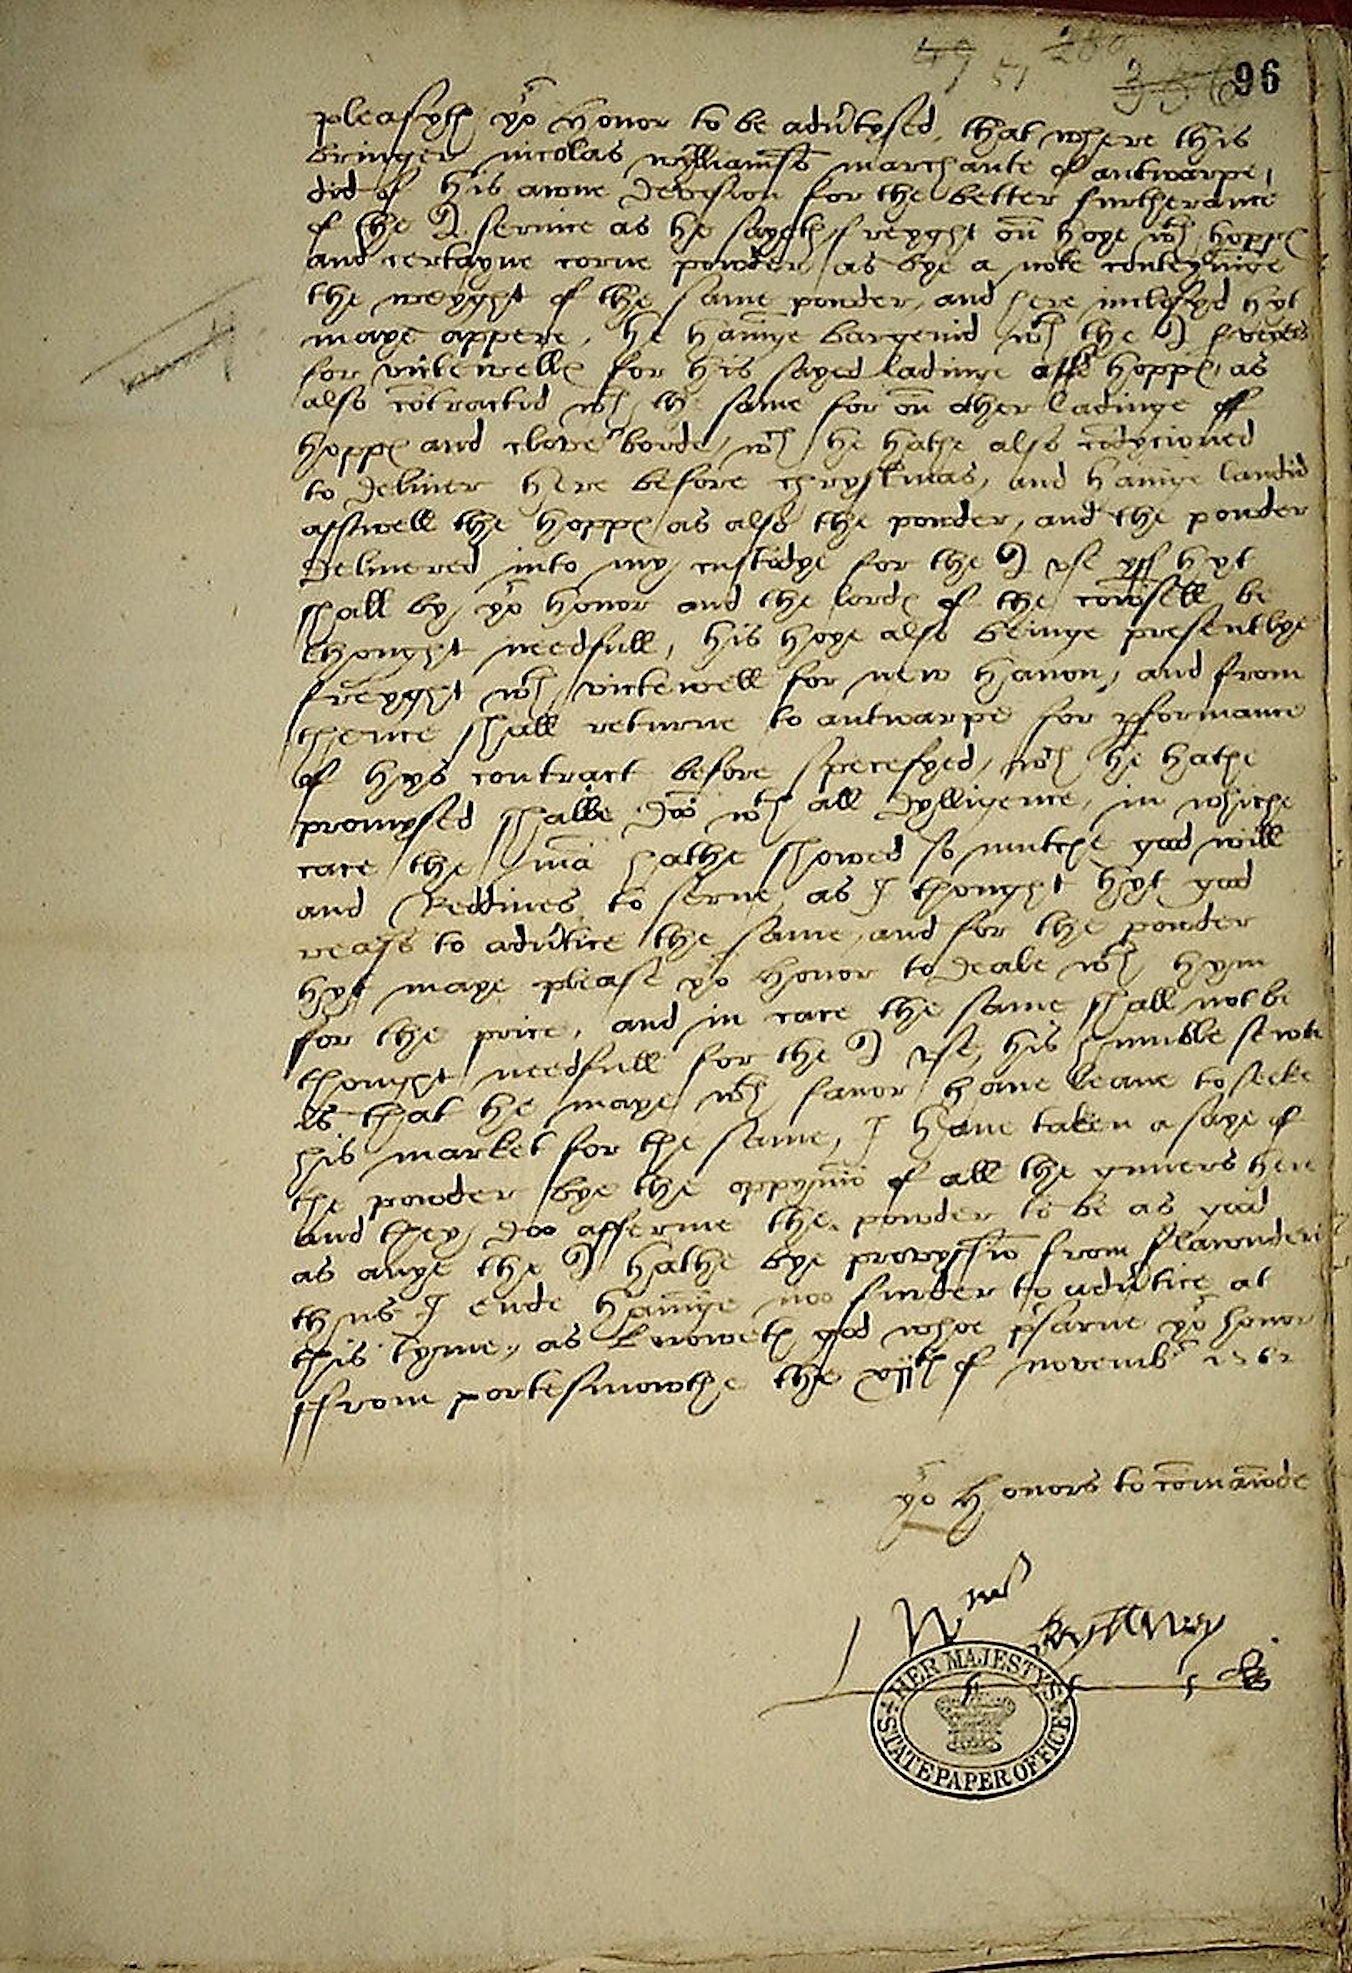 96
pleasyth yor honor to be advrtysed, that where this
bringer nicolas wylliamso marchante of antwarpe,
did of his awne devision for the better furtherance
of the Q servise as he sayeth freyght on hoye wth hopps
and certayne corne powder as bye a note conteyninge
the weyght of the same powder, and here inclosyd hyt
maye appere, he havinge bargenid wth the Q
for vittewells for his sayed ladinge of hopps, as
also cotractid wth the same for on other ladinge of
hopps and clove borde, wch he hathe also codycioned
to deliver here before chrystmas, and havinge landid
asswell the hopps as also the powder, and the powder
delivered into my custodye for the Q use yff hyt
shall by yor honor and the lords of the cownsell be
thought needfull, his hoye also beinge presentlye
freyght wth vittewell for new haven, and from
thence shall returne to antwarpe for pformance
of hys contract before specefyed, wch he hathe
promysed shalbe doo wth all dylligence, in whiche
care the ma hathe showed so mutche good will
and Reddines to serve, as I thought hyt good
to advrtice the same, and for the powder
hyt maye please yor honor to deale wth hym
for the price, and in care the same shall not be
thought needfull for the Q use, his humble sewte
is that he maye wth favor have leave to seeke
his market for the same, I have taken a saye of
the powder bye the oppynio of all the gunners here
and they doo afferme the powder to be as good
as anye the Q hathe bye provyssio from flawnders
thus I ende havinge noo furder to advrtice at
this tyme, as knoweth god whoe psarve yor honor
ffrom portesmowthe the xijth of novembr 1562
yor honors to comawnde
Wm
HER MAJESTY'S STATE PAPER OFFICE